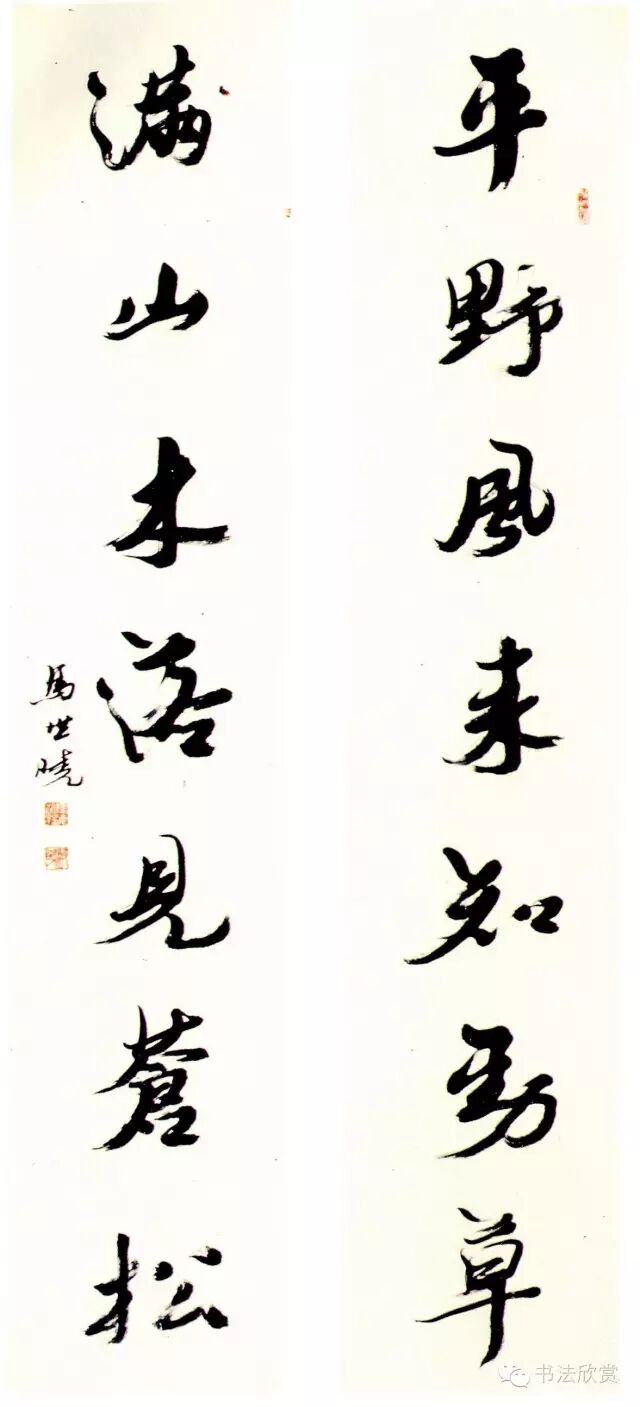 平野風来知勁草
满山木落見蒼松
馬世曉
书法欣赏